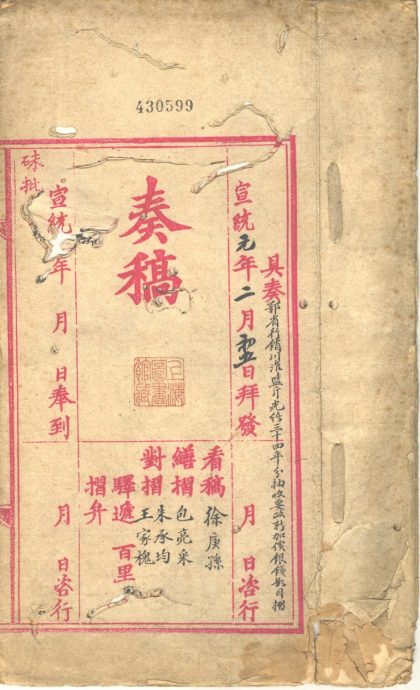 430599
具奏鄂省行銷川淮鹽斤光緒三十四年分抽收要政新加價銀錢數目摺
宣統元年二月初五日拜發 月 日咨行
奏稿
上海圖書館藏
看稿 徐庚孫
繕摺 包亮采
對摺 朱承均 王家槐
驛遞 百里
摺弁
宣統 年 月 日奉到 月 日咨行
硃批